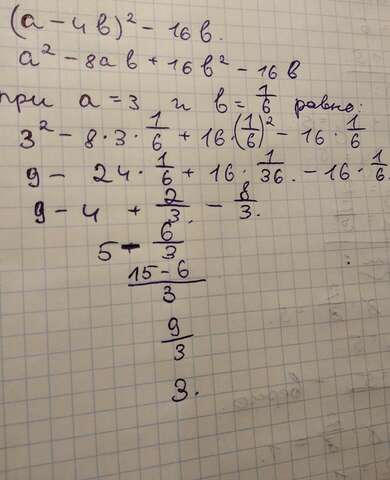 (a - 4b)² - 16b.
a² - 8ab + 16b² - 16b
при a = 3 и b = 1/6 равно:
3² - 8 · 3 · 1/6 + 16 · (1/6)² - 16 · 1/6
9 - 24 · 1/6 + 16 · 1/36. - 16 · 1/6.
9 - 4 + 2/3. - 8/3.
5 - 6/3
15 - 6/3
9/3
3.